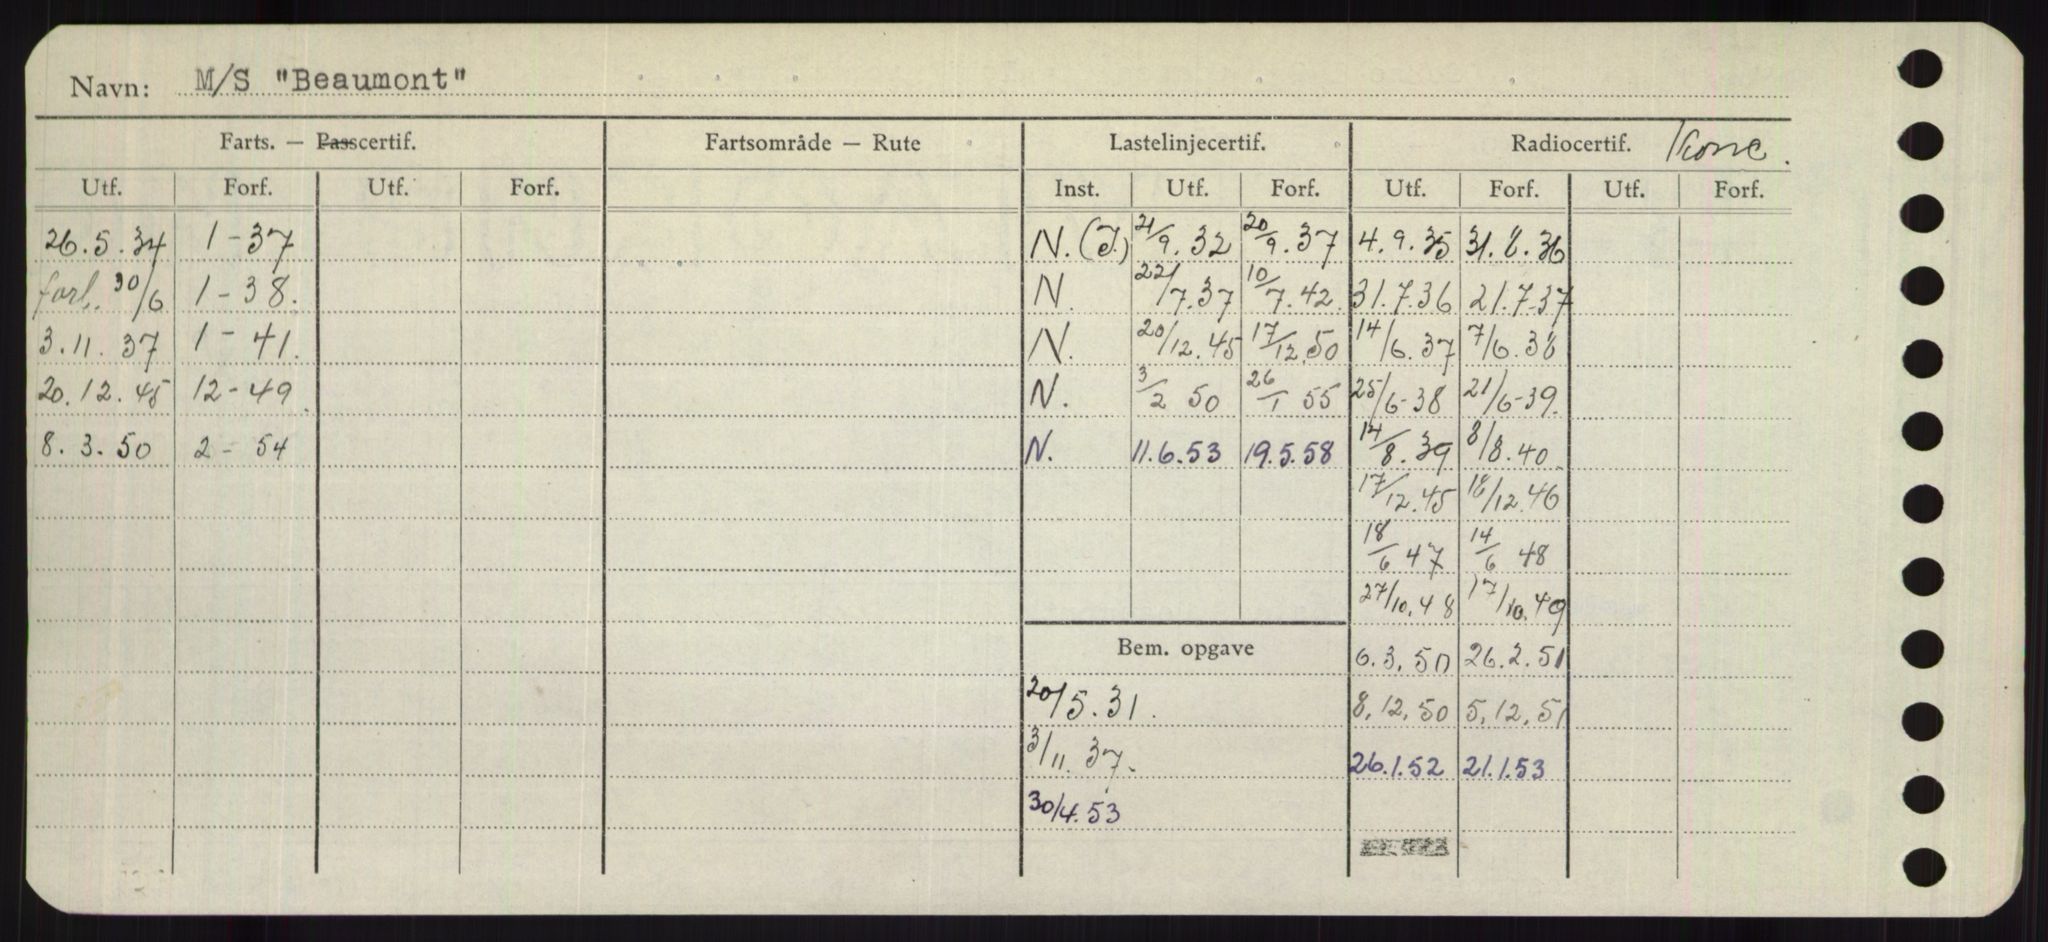 Navn: M/S "Beaumont"
Farts. — Passcertif. Fartsområde — Rute Lastelinjecertif. Radiocertif.
Utf. Forf. Utf. Forf. Inst. Utf. Forf. Utf. Forf. Utf. Forf.
26.5.34 1-37 N. (J.) 21/9.32 20/9.37 4.9.35 31.8.36
forl. 30/6 1-38. N. 22/7.37 10/7.42 31.7.36 21.7-37
3.11.37 1-41. N. 20/12.45 17/12.50 14/6.37 7/6.38
20.12.45 12-49 N. 3/2 50 26/1 55 25/6-38 21/6-39.
8.3.50 2-54 N. 11.6.53 19.5.58 14/8.39 8/8.40
17/12.45 18/12.46
18/6 47 14/6 48
27/10.48 17/10.49
Bem. opgave 6.3.50 26.2.51
20/5.31. 8.12.50 5.12.51
3/11.37. 26.1.52 21.1.53
30/4.53